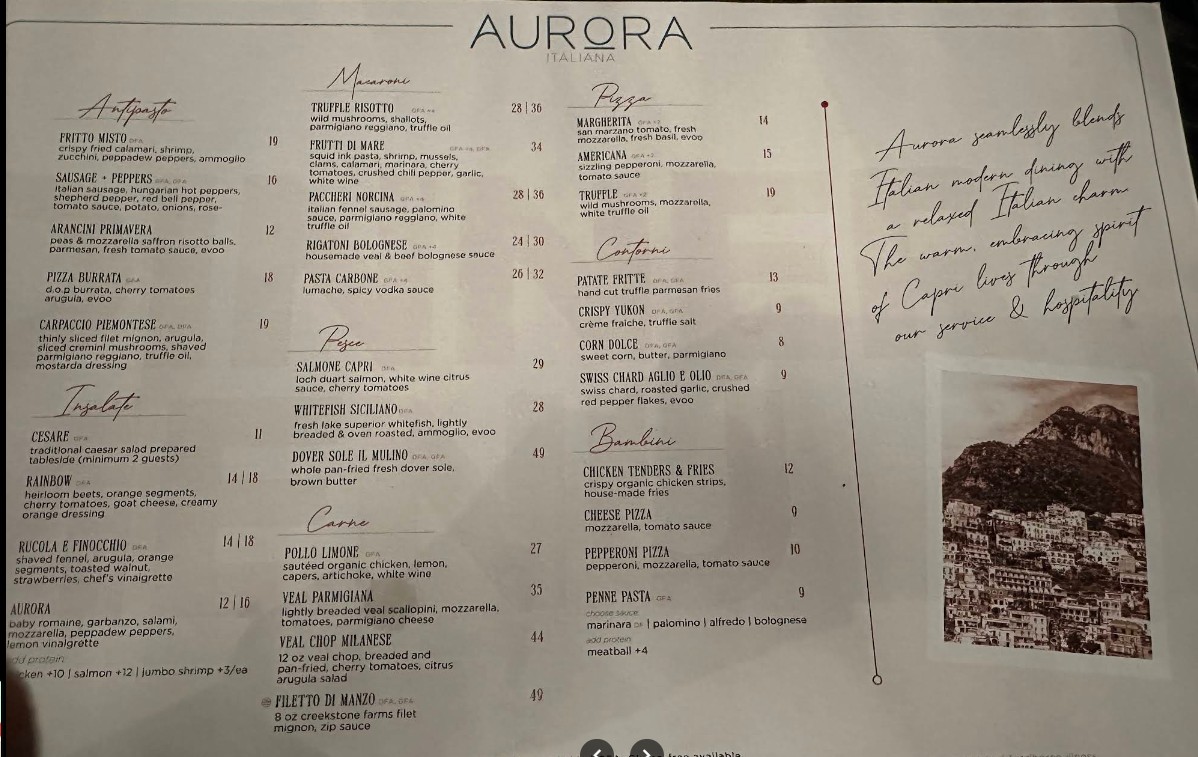 AURORA
ITALIANA
Antipasto
FRITTO MISTO GFA 19
crispy fried calamari, shrimp,
zucchini, peppadew peppers, ammoglio
SAUSAGE + PEPPERS GFA, DFA 16
italian sausage, hungarian hot peppers,
shepherd pepper, red bell pepper,
tomato sauce, potato, onions, rose-
ARANCINI PRIMAVERA 12
peas & mozzarella saffron risotto balls,
parmesan, fresh tomato sauce, evoo
PIZZA BURRATA GFA 18
d.o.p burrata, cherry tomatoes
arugula, evoo
CARPACCIO PIEMONTESE GFA, DFA 19
thinly sliced filet mignon, arugula,
sliced cremini mushrooms, shaved
parmigiano reggiano, truffle oil,
mostarda dressing
Insalate
CESARE GFA 11
traditional caesar salad prepared
tableside (minimum 2 guests)
RAINBOW GFA 14 | 18
heirloom beets, orange segments,
cherry tomatoes, goat cheese, creamy
orange dressing
RUCOLA E FINOCCHIO GFA 14 | 18
shaved fennel, arugula, orange
segments, toasted walnut,
strawberries, chef's vinaigrette
AURORA 12 | 16
baby romaine, garbanzo, salami,
mozzarella, peppadew peppers,
lemon vinaigrette
dd protein:
cken +10 | salmon +12 | jumbo shrimp +3/ea
Macaroni
TRUFFLE RISOTTO GFA +4 28 | 36
wild mushrooms, shallots,
parmigiano reggiano, truffle oil
FRUTTI DI MARE GFA +4, DFA 34
squid ink pasta, shrimp, mussels,
clams, calamari, marinara, cherry
tomatoes, crushed chili pepper, garlic,
white wine
PACCHERI NORCINA GFA +4 28 | 36
italian fennel sausage, palomino
sauce, parmigiano reggiano, white
truffle oil
RIGATONI BOLOGNESE GFA +4 24 | 30
housemade veal & beef bolognese sauce
PASTA CARBONE GFA +4 26 | 32
lumache, spicy vodka sauce
Pesce
SALMONE CAPRI GFA 29
loch duart salmon, white wine citrus
sauce, cherry tomatoes
WHITEFISH SICILIANO GFA 28
fresh lake superior whitefish, lightly
breaded & oven roasted, ammoglio, evoo
DOVER SOLE IL MULINO DFA, GFA 49
whole pan-fried fresh dover sole,
brown butter
Carne
POLLO LIMONE GFA 27
sautéed organic chicken, lemon,
capers, artichoke, white wine
VEAL PARMIGIANA 35
lightly breaded veal scallopini, mozzarella,
tomatoes, parmigiano cheese
VEAL CHOP MILANESE 44
12 oz veal chop, breaded and
pan-fried, cherry tomatoes, citrus
arugula salad
FILETTO DI MANZO DFA, GFA 49
8 oz creekstone farms filet
mignon, zip sauce
Pizza
MARGHERITA GFA +2 14
san marzano tomato, fresh
mozzarella, fresh basil, evoo
AMERICANA GFA +2 15
sizzling pepperoni, mozzarella,
tomato sauce
TRUFFLE GFA +2 19
wild mushrooms, mozzarella,
white truffle oil
Contorni
PATATE FRITTE GFA, DFA 13
hand cut truffle parmesan fries
CRISPY YUKON DFA, GFA 9
crème fraiche, truffle salt
CORN DOLCE DFA, GFA 8
sweet corn, butter, parmigiano
SWISS CHARD AGLIO E OLIO DFA, GFA 9
swiss chard, roasted garlic, crushed
red pepper flakes, evoo
Bambini
CHICKEN TENDERS & FRIES 12
crispy organic chicken strips,
house-made fries
CHEESE PIZZA 9
mozzarella, tomato sauce
PEPPERONI PIZZA 10
pepperoni, mozzarella, tomato sauce
PENNE PASTA GFA 9
choose sauce
marinara DF | palomino | alfredo | bolognese
add protein
meatball +4
Aurora seamlessly blends
Italian modern dining with
a relaxed Italian charm
The warm, embracing spirit
of Capri lives through
our service & hospitality
free available